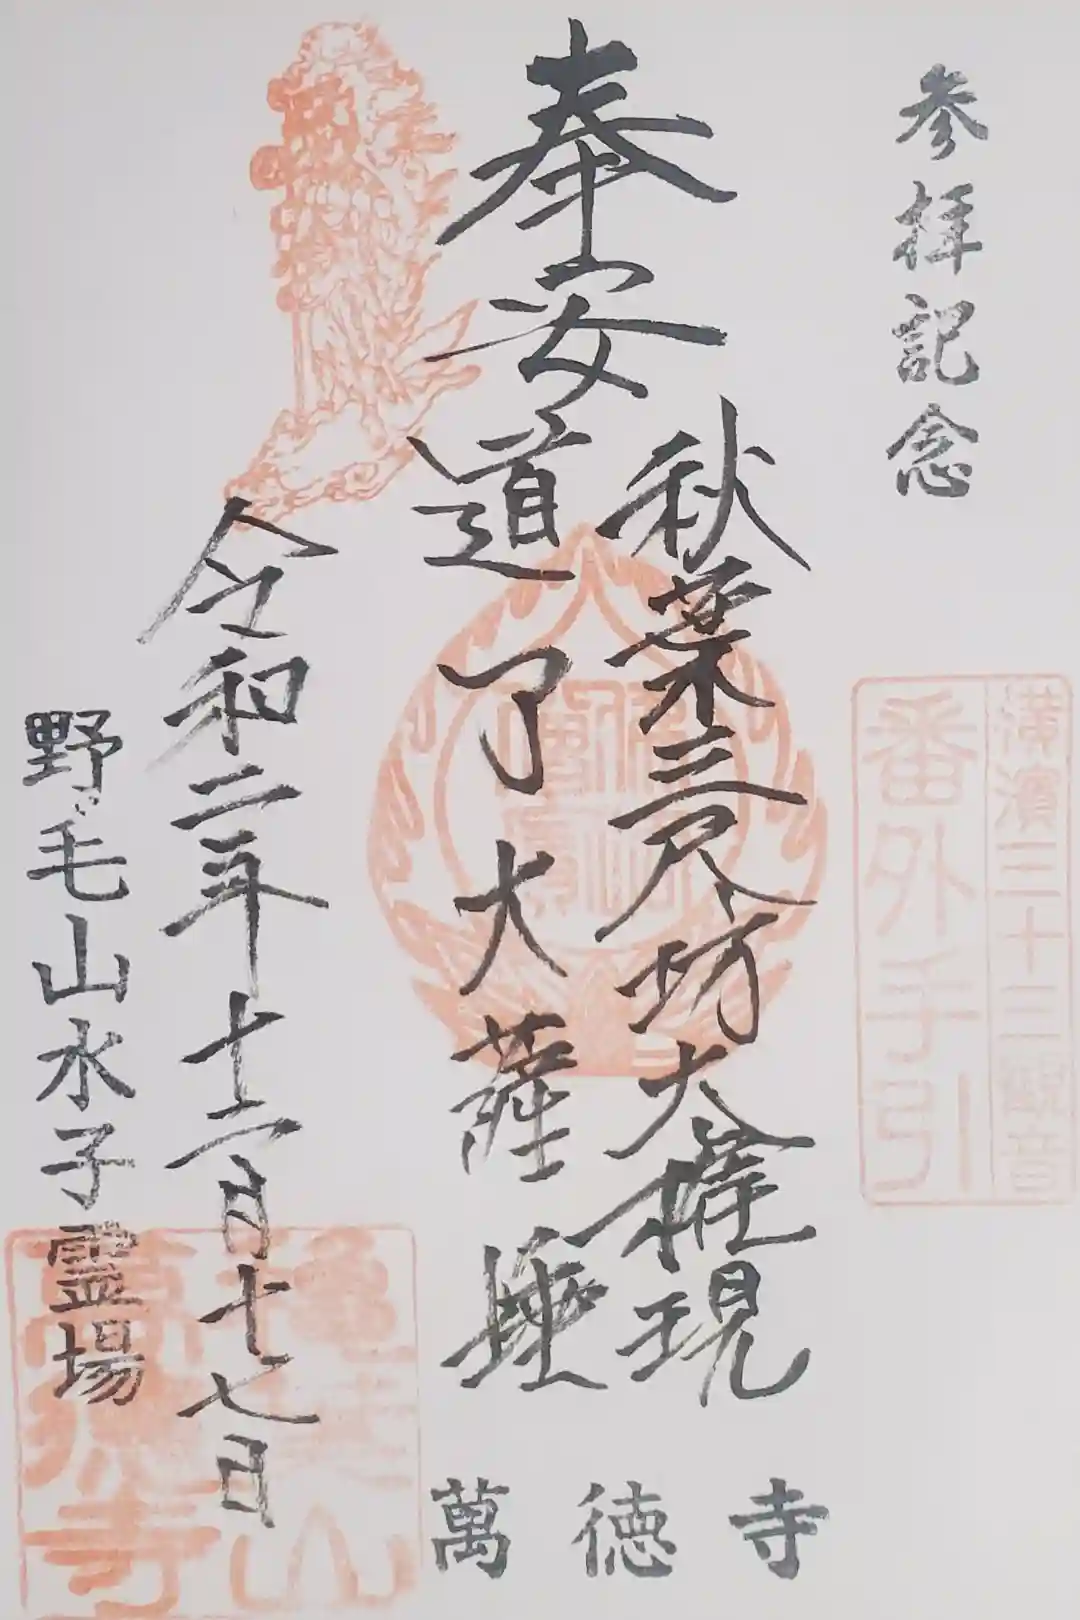 参拝記念
横濱三十三観音
番外手引
奉安
秋葉三尺坊大権現
道了大薩埵
令和二年十二月十七日
野毛山水子霊場
萬徳寺